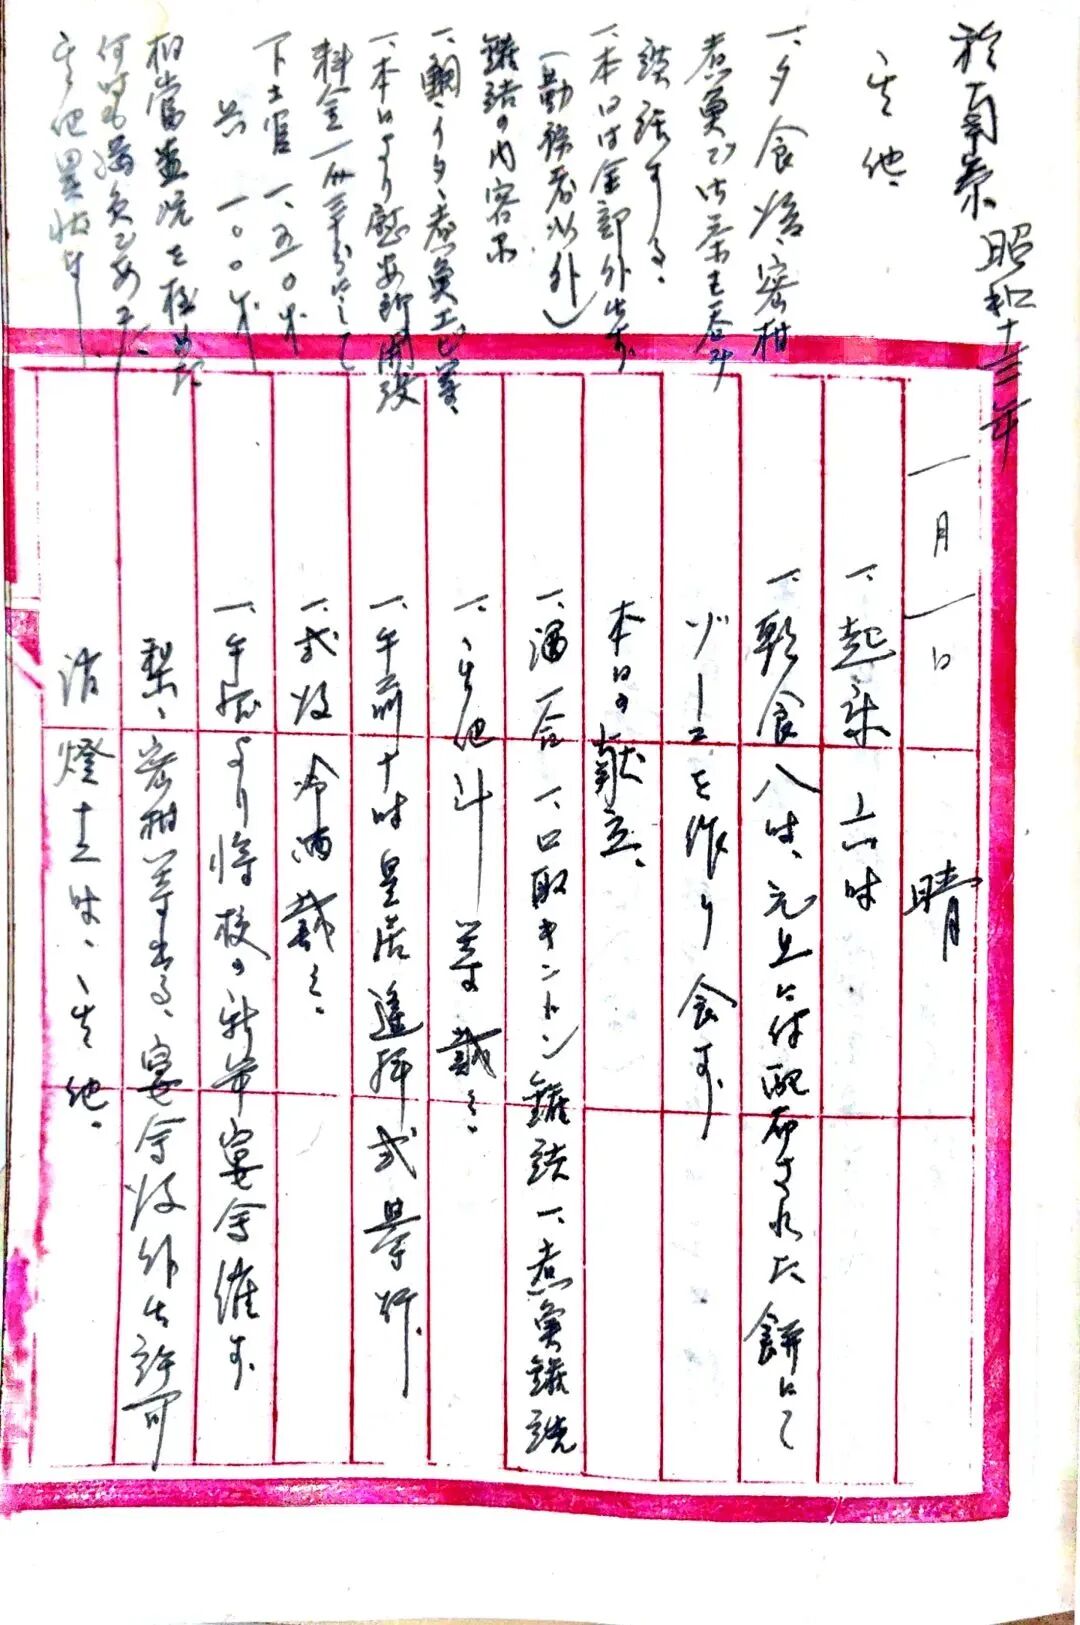 於南京 昭和十三年
一月一日 晴
一、起床 六時
一、朝食八時、元旦に付配布された餅にて
ゾーニを作り会す、
本日の献立、
一、酒一合 一、口取キントン鑵詰 一、煮魚鑵詰
一、其他 等戴く、
一、午前十時皇居遙拝式挙行、
一、式後冷酒戴く、
一、午後より将校の新年宴会催す、
梨、密柑等出る、宴会後外出許可
消燈十二時、其他、
其他、
一、夕食後、密柑
煮魚 御茶を呑み
談話する、
一、本日は全部外出す
(勤務者以外)
鑵詰の内容不
一、鯛、イタ、煮魚 等、
一、本日より慰安所開設
料金一 三十分にして
下士官 一、五〇才
兵 一〇〇才
相当盛況を極めた
何時も満員であった、
其他異状なし